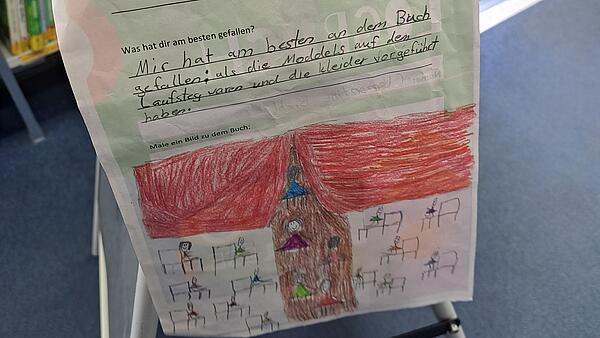 Was hat dir am besten gefallen?
Mir hat am besten an dem Buch
gefallen, als die Moddels auf dem
Laufsteg waren und die kleider vorgeführt
haben.
Male ein Bild zu dem Buch: